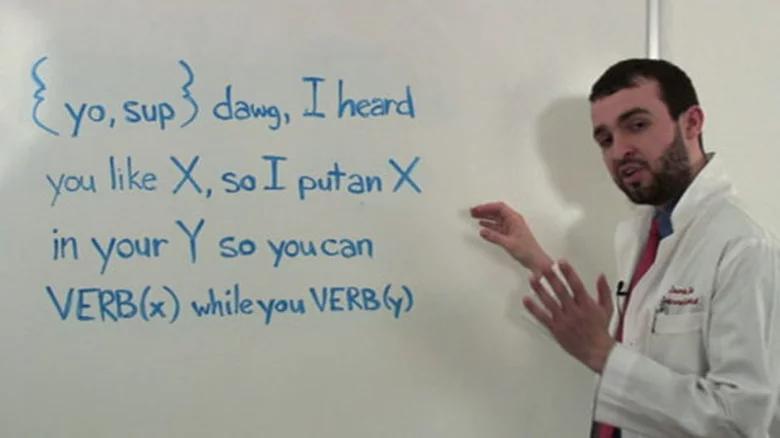 {yo, sup} dawg, I heard
you like X, so I put an X
in your Y so you can
VERB(x) while you VERB(y)